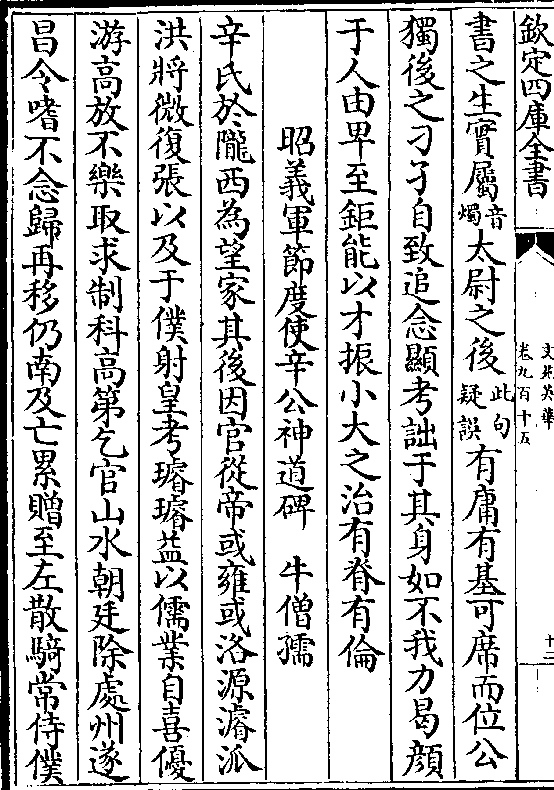 欽定四庫全書
文苑英華
卷九百十五
十三
書之生實屬音燭太尉之後此句疑誤有庸有基可席而位公
獨後之刁孑自致追念顯考詘于其身如不我力曷顔
于人由卑至鉅能以才振小大之治有脊有倫
昭義軍節度使辛公神道碑 牛僧孺
辛氏於隴西為望家其後因官從帝或雍或洛源濬派
洪將微復張以及于僕射皇考璿璿益以儒業自喜優
游高放不樂取求制科高第乞官山水朝廷除處州遂
昌令嗜不念歸再移仍南及亡累贈至左散騎常侍僕